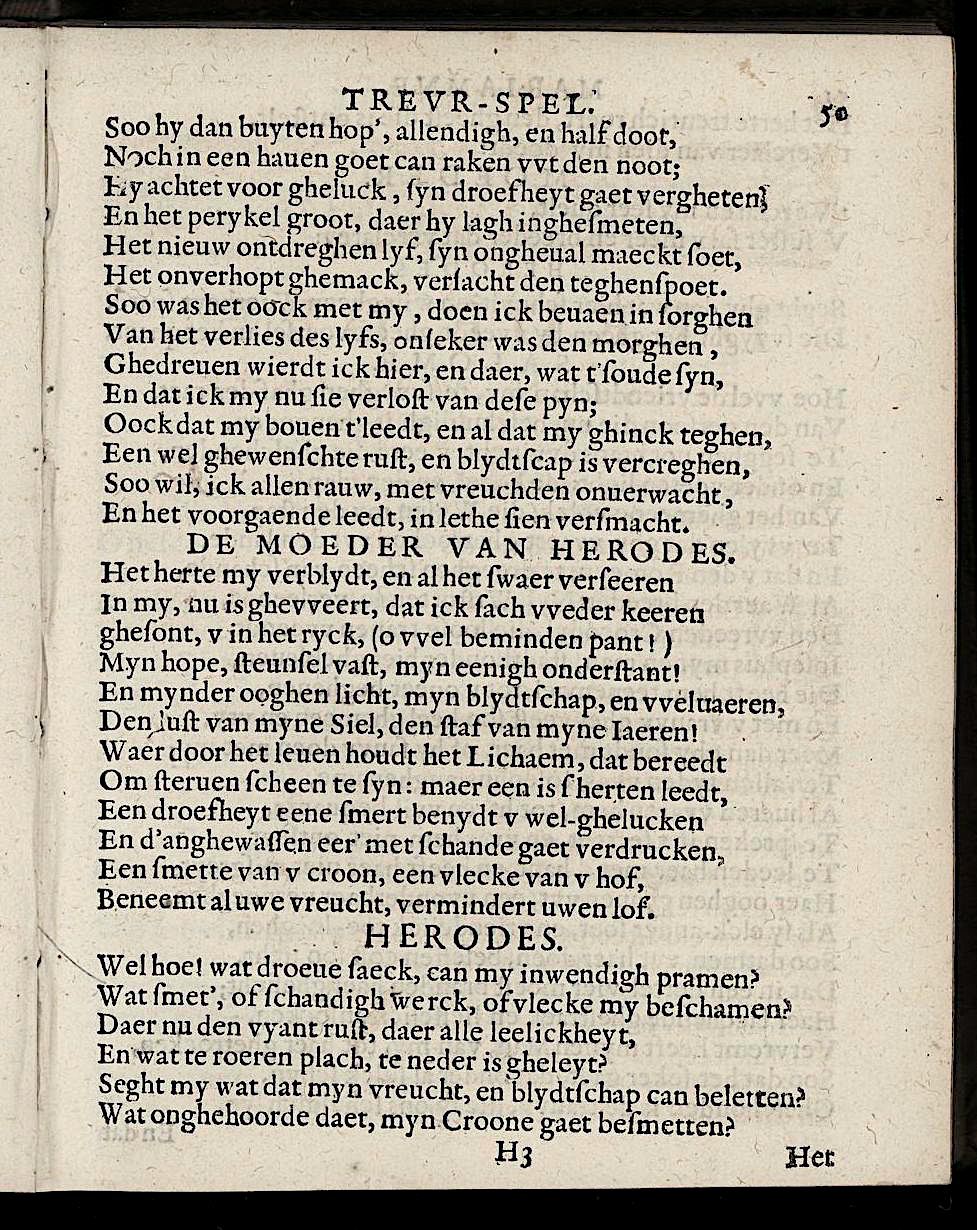 TREVR-SPEL. 50
Soo hy dan buyten hop', allendigh, en half doot,
Noch in een hauen goet can raken vvt den noot;
Hy achtet voor gheluck, ſyn droefheyt gaet vergheten;
En het perykel groot, daer hy lagh ingheſmeten,
Het nieuw ontdreghen lyf, ſyn ongheual maeckt ſoet,
Het onverhopt ghemack, verſacht den teghenſpoet.
Soo was het oock met my, doen ick beuaen in ſorghen
Van het verlies des lyfs, onſeker was den morghen,
Ghedreuen wierdt ick hier, en daer, wat t'ſoude ſyn,
En dat ick my nu ſie verloſt van deſe pyn;
Oock dat my bouen t'leedt, en al dat my ghinck teghen,
Een wel ghewenſchte ruſt, en blydtſcap is vercreghen,
Soo wil, ick allen rauw, met vreuchden onuerwacht,
En het voorgaende leedt, in lethe ſien verſmacht.
DE MOEDER VAN HERODES.
Het herte my verblydt, en al het ſwaer verſeeren
In my, nu is ghevveert, dat ick ſach vveder keeren
gheſont, v in het ryck, (o vvel beminden pant!)
Myn hope, ſteunſel vaſt, myn eenigh onderſtant!
En mynder ooghen licht, myn blydtſchap, en vveluaeren,
Den luſt van myne Siel, den ſtaf van myne Iaeren!
Waer door het leuen houdt het Lichaem, dat bereedt
Om ſteruen ſcheen te ſyn: maer een is ſ'herten leedt,
Een droefheyt eene ſmert benydt v wel-ghelucken
En d'anghewaſſen eer' met ſchande gaet verdrucken,
Een ſmette van v croon, een vlecke van v hof,
Beneemt al uwe vreucht, vermindert uwen lof.
HERODES.
Wel hoe! wat droeue ſaeck, can my inwendigh pramen?
Wat ſmet', of ſchandigh werck, of vlecke my beſchamen?
Daer nu den vyant ruſt, daer alle leelickheyt,
En wat te roeren plach, te neder is gheleyt?
Seght my wat dat myn vreucht, en blydtſchap can beletten?
Wat onghehoorde daet, myn Croone gaet beſmetten?
H3 Het